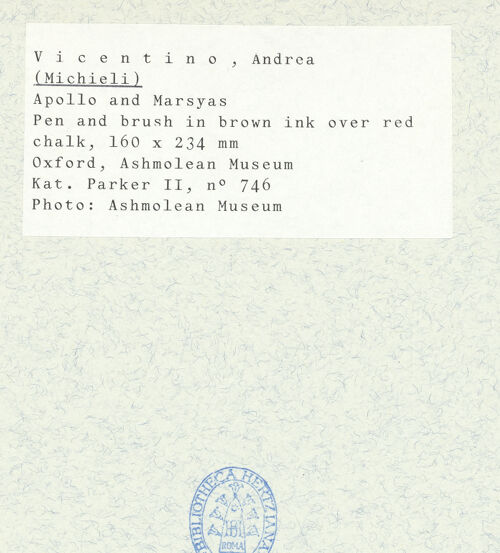 V i c e n t i n o , Andrea
(Michieli)
Apollo and Marsyas
Pen and brush in brown ink over red
chalk, 160 x 234 mm
Oxford, Ashmolean Museum
Kat. Parker II, nº 746
Photo: Ashmolean Museum
BIBLIOTHECA HERTZIANA
ROMA